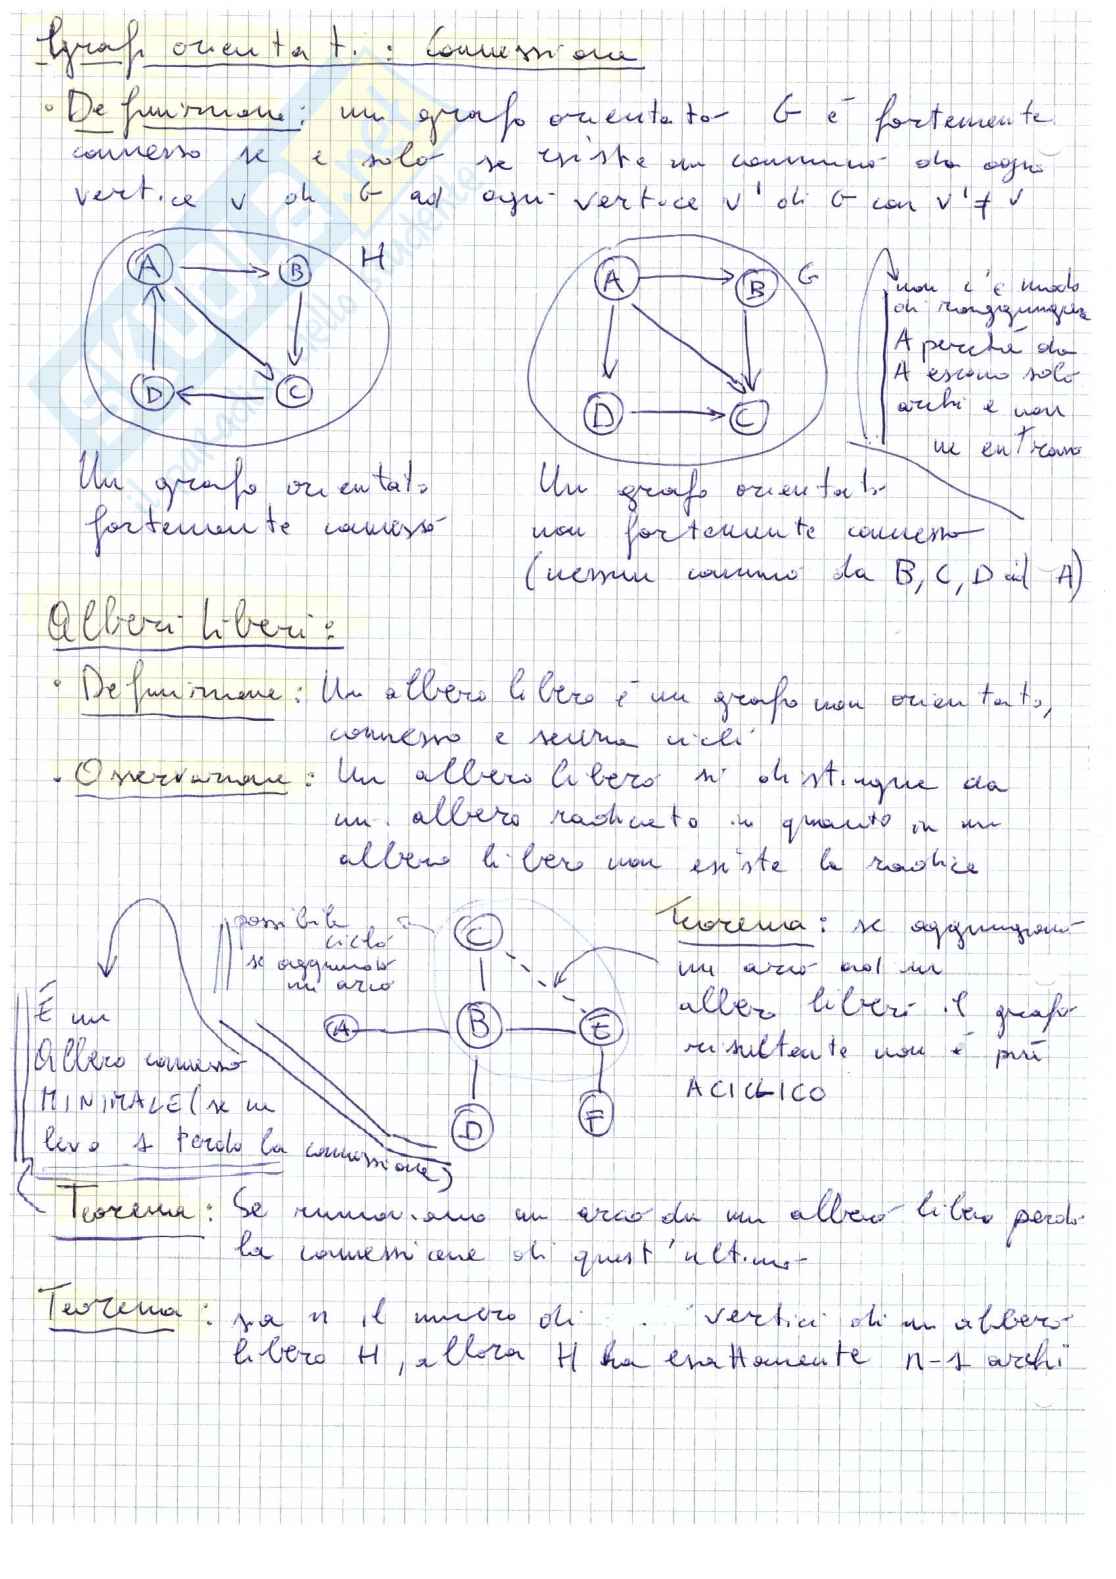 I grafi orientati: Connessione
• Definizione: un grafo orientato G è fortemente
connesso se e solo se esiste un cammino da ogni
vertice v di G ad ogni vertice v' di G con v' ≠ v
A B H
D C
A B G
D C
non c'è modo
di raggiungere
A perché da
A escono solo
archi e non
ne entrano
Un grafo orientato
fortemente connesso
Un grafo orientato
non fortemente connesso
(nessun cammino da B, C, D ad A)
Alberi liberi:
• Definizione: Un albero libero è un grafo non orientato,
connesso e senza cicli
• Osservazione: Un albero libero si distingue da
un albero radicato in quanto in un
albero libero non esiste la radice
possibile
ciclo
se aggiungo
un arco
C
A B E
D F
Teorema: se aggiungiamo
un arco ad un
albero liberi il grafo
risultante non è più
ACICLICO
È un
Albero connesso
MINIMALE (se ne
levo 1 perdo la connessione)
Teorema: Se rimuoviamo un arco da un albero libero perdo
la connessione di quest'ultimo
Teorema: sia n il numero di vertici di un albero
libero H, allora H ha esattamente n-1 archi
SKUOLA.net
il portale dello studente